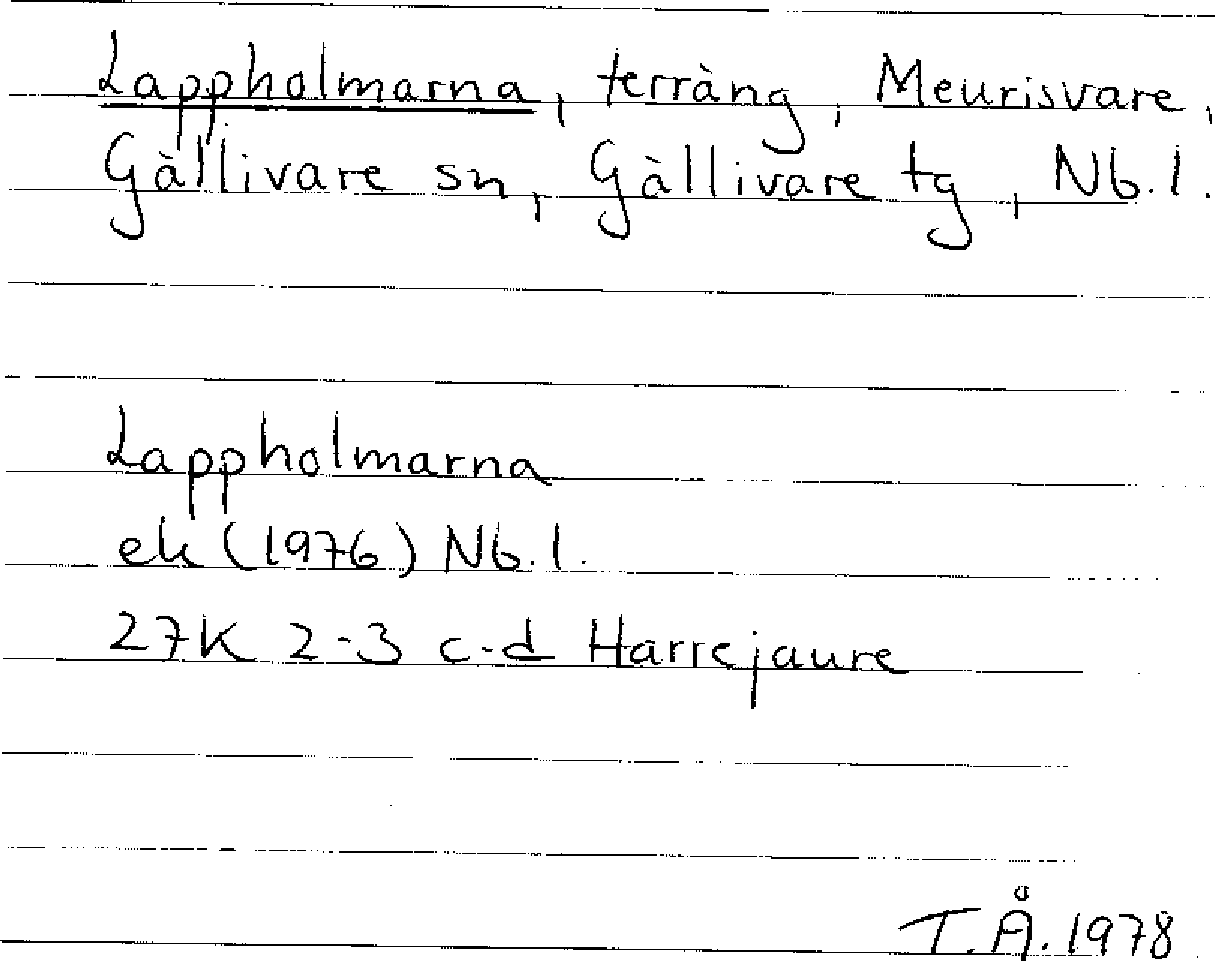 Lappholmarna, terräng, Meurisvare,
Gällivare sn, Gällivare tg, Nb. l.
Lappholmarna
ek (1976) Nb. l.
27K 2-3 c-d Harrejaure
T.Å. 1978